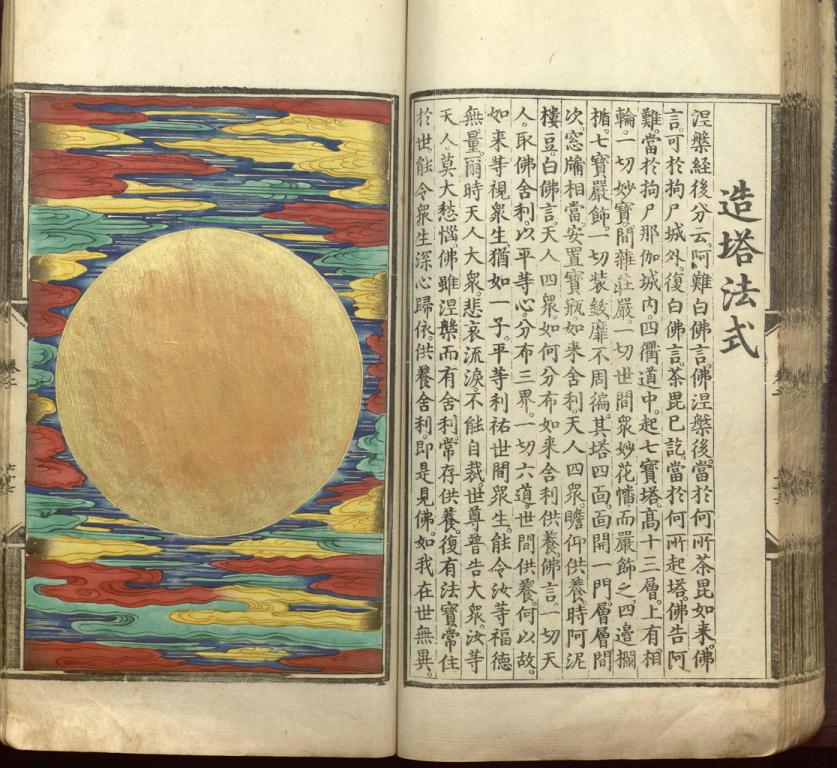 造塔法式
涅槃経後分云。阿難白佛言。佛涅槃後。當於何所荼毘如來。佛
言。可於拘尸城外。復白佛言。荼毘已訖。當於何所起塔。佛告阿
難。當於拘尸那伽城內。四衢道中。起七寶塔。高十三層。上有相
輪。一切妙寶。間雜莊嚴。一切世間眾妙花幡而嚴飾之。四邊攔
楯。七寶嚴飾。一切装鉸。靡不周徧。其塔四面。面開一門。層層間
次。窓牖相當。安置寶瓶。如來舍利。天人四眾。瞻仰供養。時阿泥
樓豆白佛言。天人四眾。如何分布如來舍利供養。佛言。一切天
人。取佛舍利。以平等心。分布三界。一切六道。世間供養。何以故。
如來等視眾生。猶如一子。平等利祐世間眾生。能令汝等福徳
無量。爾時天人大眾。悲哀流淚。不能自裁。世尊普告大眾。汝等
天人。莫大愁惱。佛雖涅槃。而有舍利。常存供養。復有法寶。常住
於世。能令眾生深心歸依。供養舍利。即是見佛。如我在世無異。
卷二